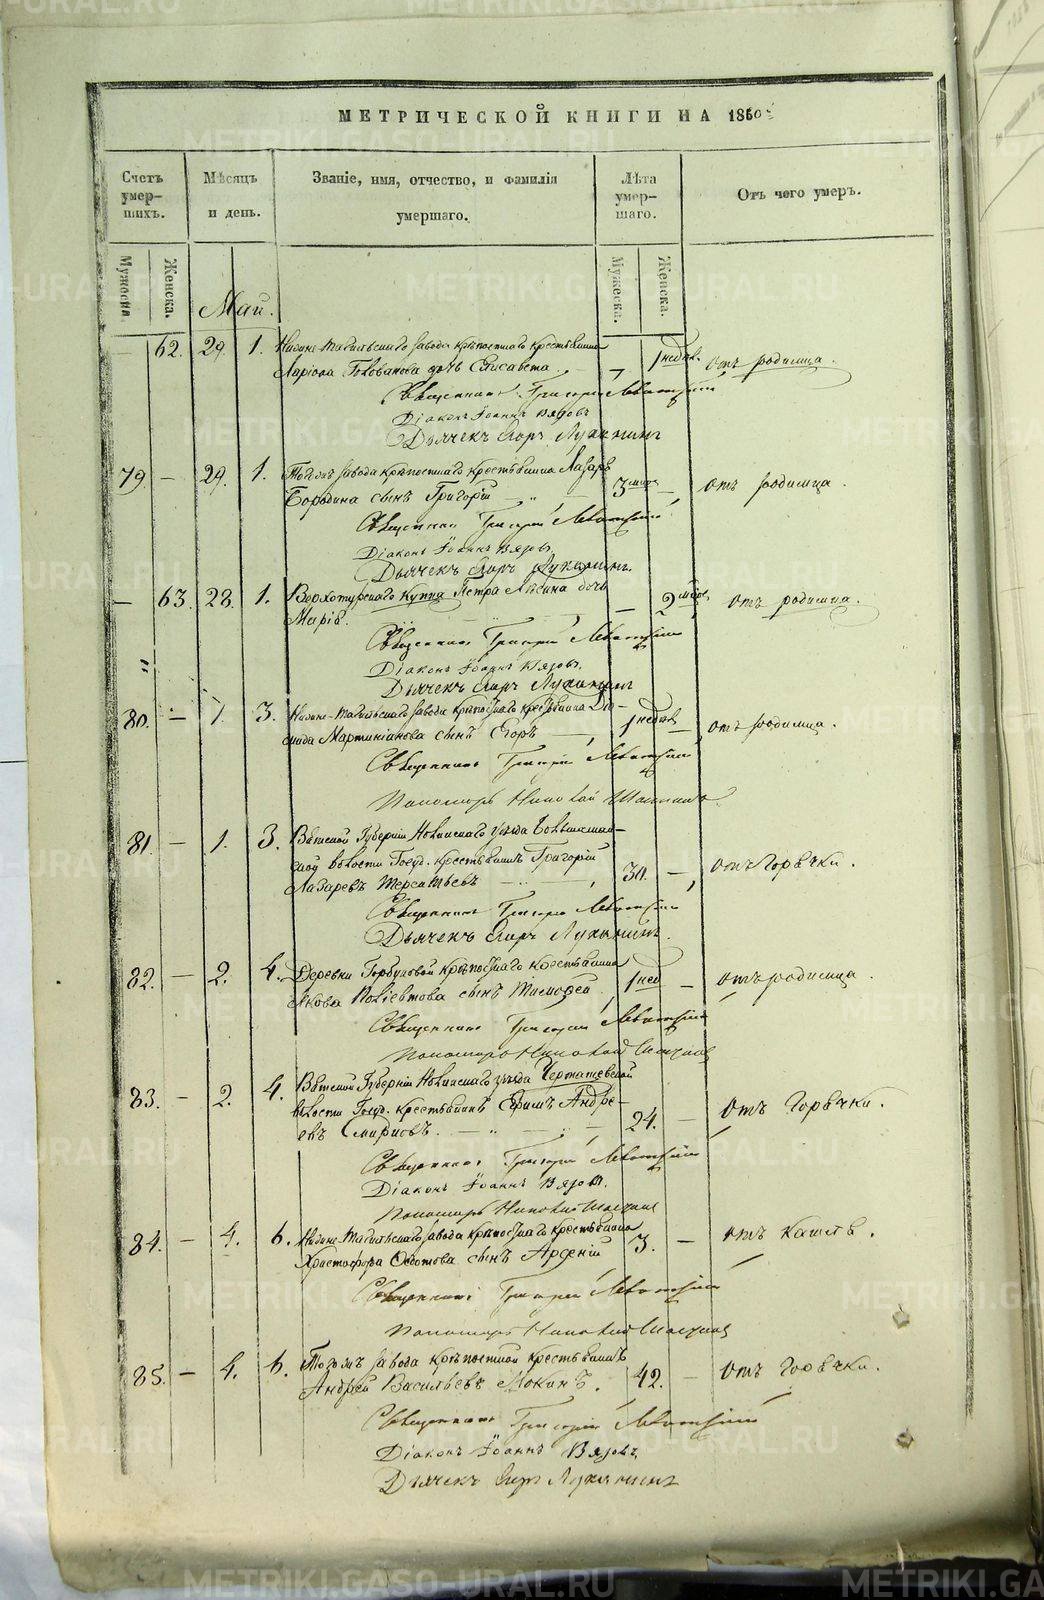 МЕТРИЧЕСКОЙ КНИГИ НА 1860
Счетъ умер-шихъ.
Мѣсяцъ и день.
Званіе, имя, отчество, и фамилія умершаго.
Лѣта умер-шаго.
Отъ чего умеръ.
Мужеска.
Женска.
Май.
Мужеска.
Женска.
— 62. 29. 1. Нижне-Тагильскаго завода крѣпостнаго крестьянина
Ларіона Голованова дочь Елисавета — 1 недѣл. отъ родимца.
Священникъ Григорій Левитскій
Діаконъ Іоаннъ Вязовъ
Дьячекъ Егоръ Лукинъ
79. — 29. 1. Тогожъ завода крѣпостнаго крестьянина Лазаря
Бородина сынъ Григорій 3 мѣс. — отъ родимца.
Священникъ Григорій Левитскій
Діаконъ Іоаннъ Вязовъ
Дьячекъ Егоръ
— 63. 28. 1. Верхотурскаго купца Петра дочь
Марія. — 2 отъ родимца.
Священникъ Григорій Левитскій
Діаконъ Іоаннъ Вязовъ.
Дьячекъ Егоръ
80. — 1. 3. Нижне-Тагильскаго завода крѣпостнаго крестьянина Діо-
мида Мартиніанова сынъ Егоръ 1 недѣл. — отъ родимца.
Священникъ Григорій Левитскій
Пономарь Николай
81. — 1. 3. Вятской Губерніи Нолинскаго уѣзда
ской волости Госуд. крестьянинъ Григорій
Лазаревъ 30. — отъ Горячки.
Священникъ Григорій Левитскій
Дьячекъ Егоръ
82. — 2. 4. Деревни Горбуновой крѣпостнаго крестьянина
Якова сынъ Тимофей 1 нед — отъ родимца.
Священникъ Григорій Левитскій
Пономарь Николай
83. — 2. 4. Вятской Губерніи Нолинскаго уѣзда
волости Госуд. крестьянинъ Ефимъ Андре-
евъ Смирновъ. 24. — отъ Горячки.
Священникъ Григорій Левитскій
Діаконъ Іоаннъ Вязовъ.
Пономарь Николай
84. — 4. 6. Нижне-Тагильскаго завода крѣпостнаго крестьянина
Христофора сынъ Арсеній 3. — отъ кашля.
Священникъ Григорій Левитскій
Пономарь Николай
85. — 4. 6. Тогожъ завода крѣпостной крестьянинъ
Андрей Васильевъ Мокинъ. 42. — отъ Горячки.
Священникъ Григорій Левитскій
Діаконъ Іоаннъ Вязовъ
Дьячекъ Егоръ
METRIKI.GASO-URAL.RU